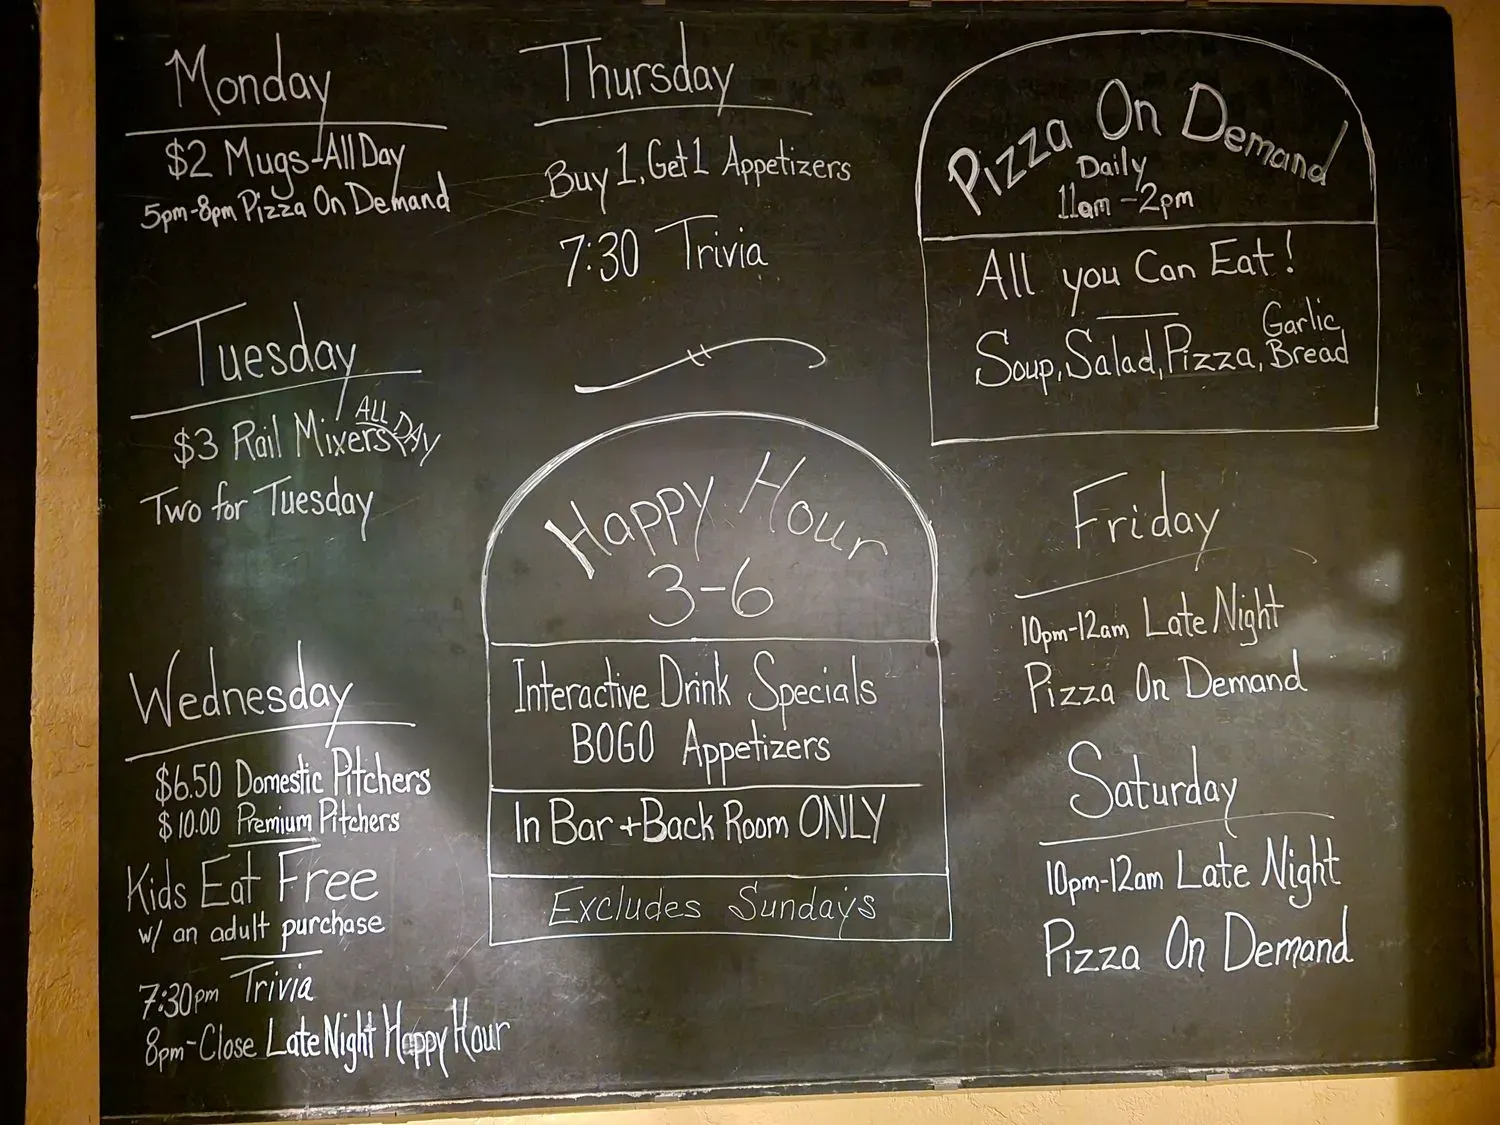 Monday
$2 Mugs-All Day
5pm-8pm Pizza On Demand
Tuesday
$3 Rail Mixers ALL DAY
Two for Tuesday
Wednesday
$6.50 Domestic Pitchers
$10.00 Premium Pitchers
Kids Eat Free
w/ an adult purchase
7:30pm Trivia
8pm-Close Late Night Happy Hour
Thursday
Buy 1, Get 1 Appetizers
7:30 Trivia
Happy Hour
3-6
Interactive Drink Specials
BOGO Appetizers
In Bar + Back Room ONLY
Excludes Sundays
Pizza On Demand
Daily
11am-2pm
All you Can Eat!
Soup, Salad, Pizza, Garlic Bread
Friday
10pm-12am Late Night
Pizza On Demand
Saturday
10pm-12am Late Night
Pizza On Demand